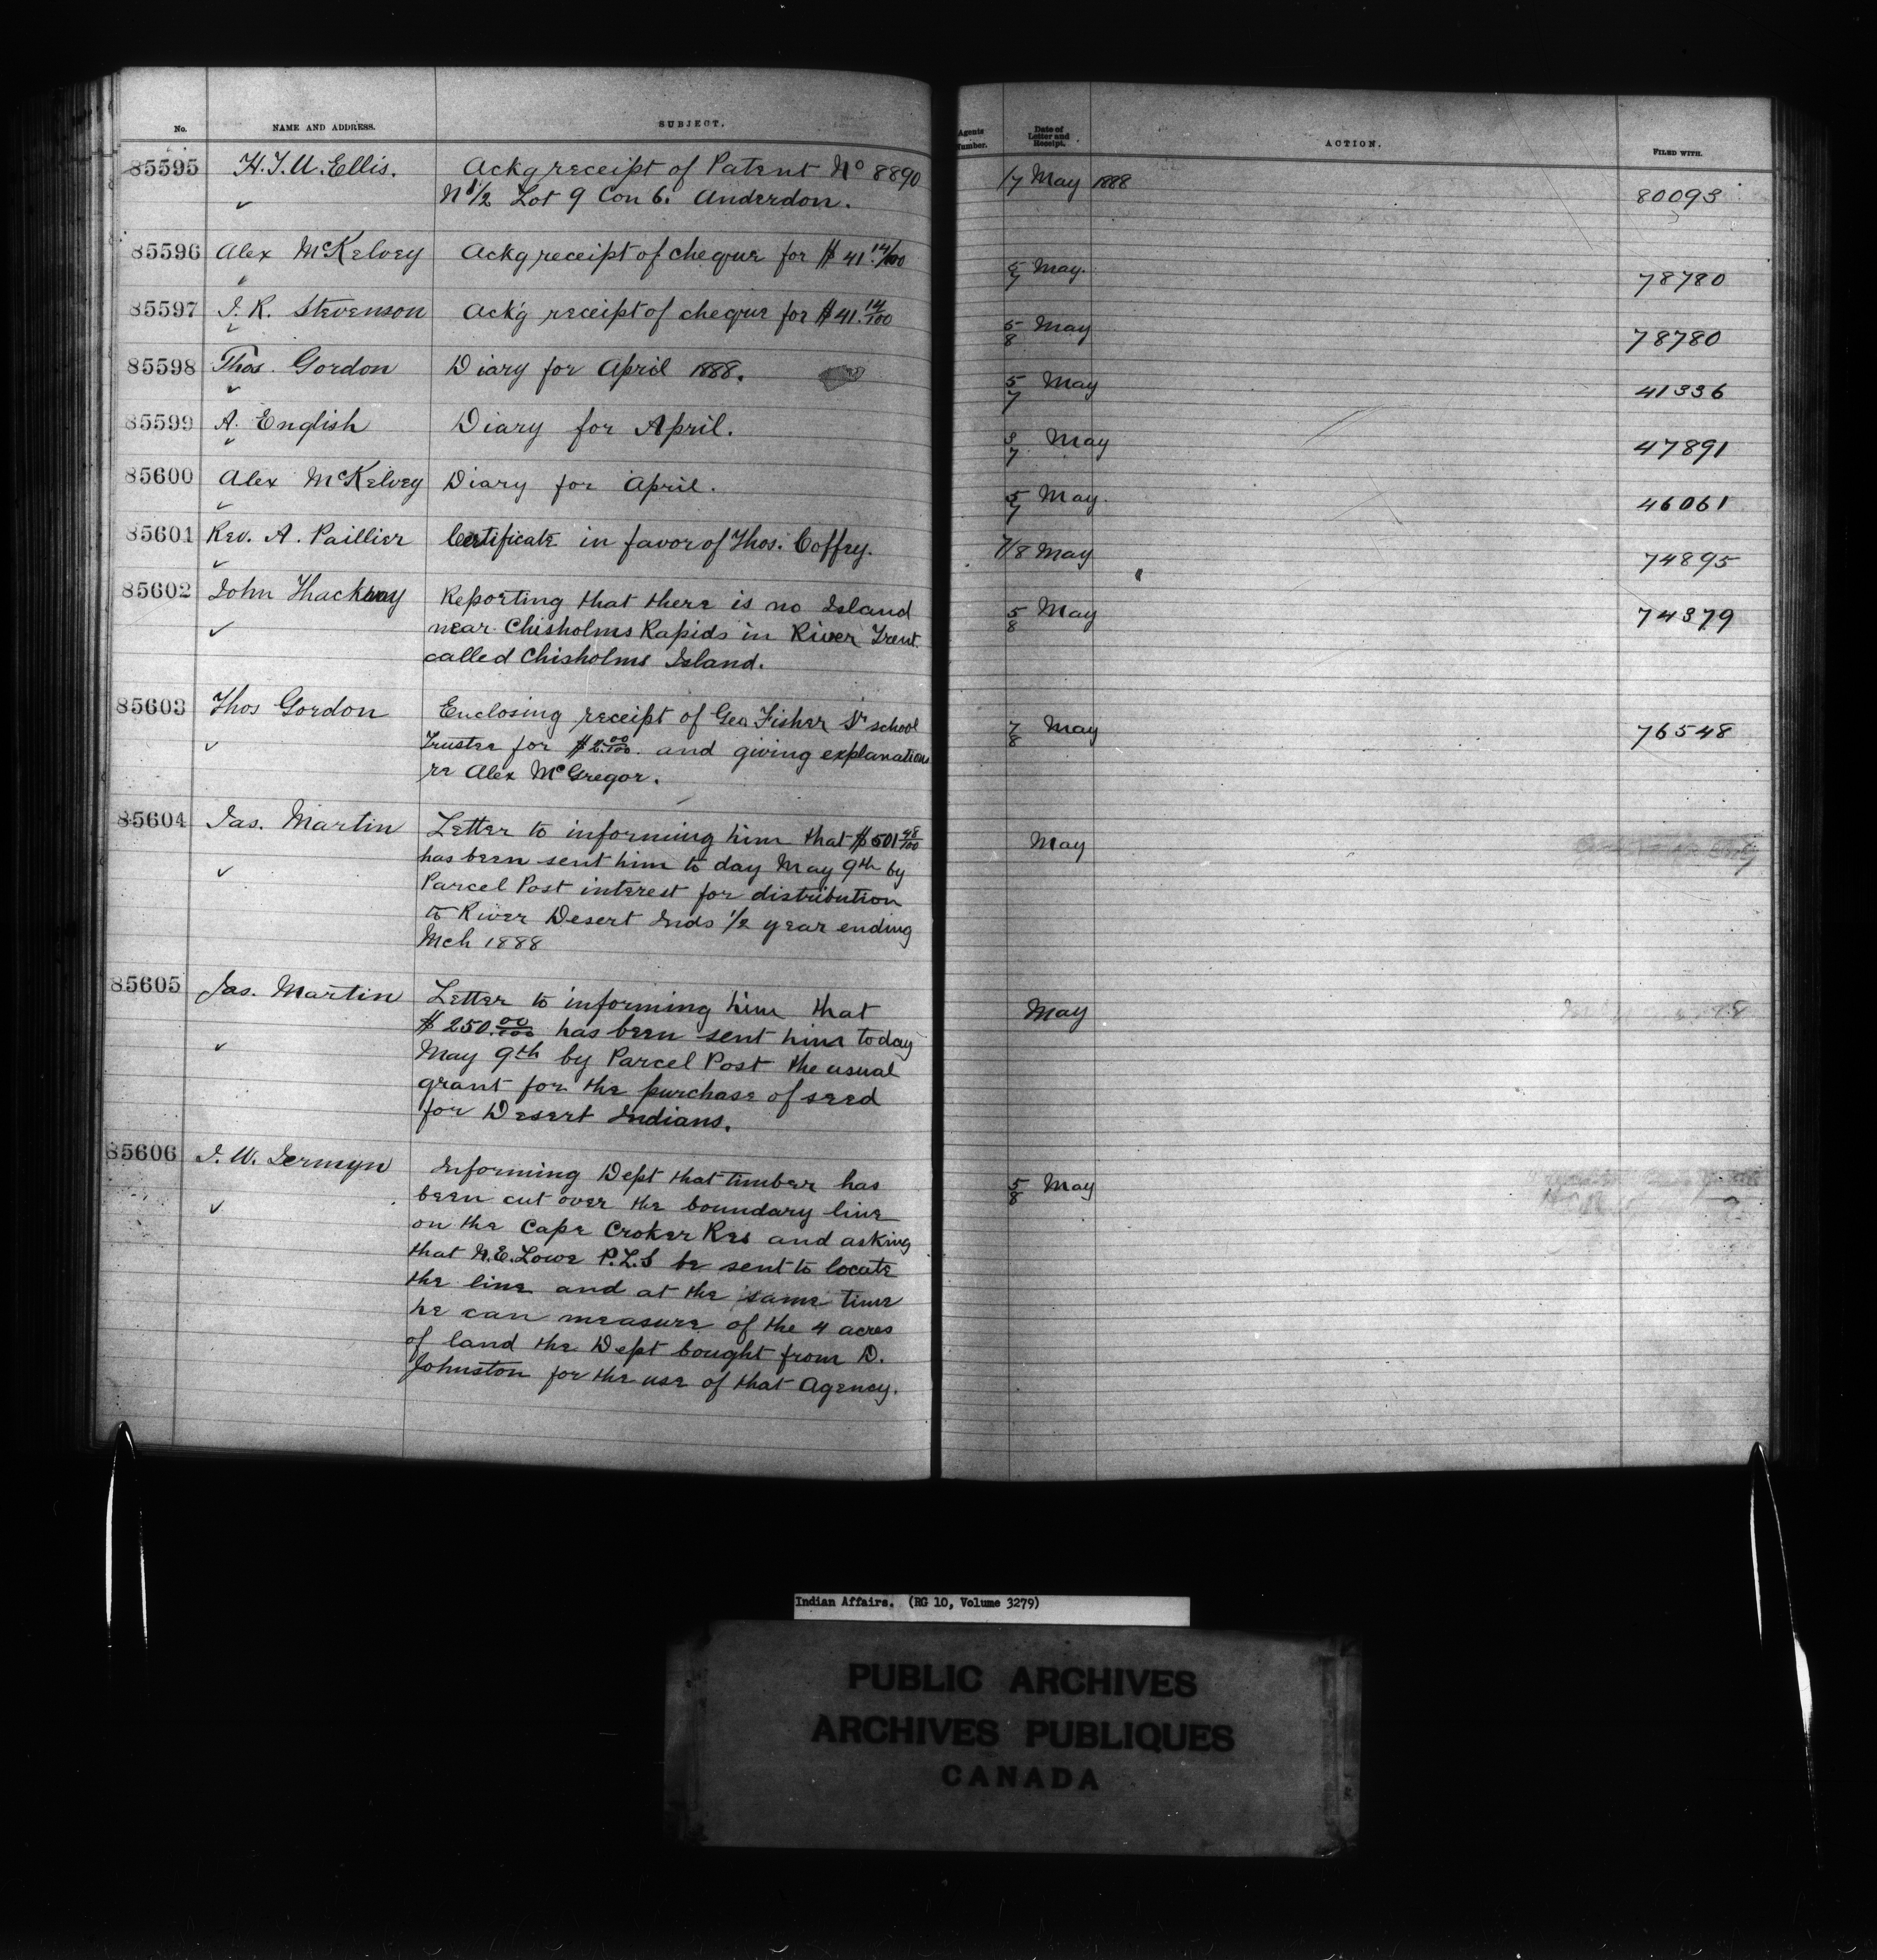 No. NAME AND ADDRESS. SUBJECT. Agents Number. Date of Letter and Receipt. ACTION. FILED WITH.
85595 H.T.U. Ellis. Ackg receipt of Patent No 8890 17 May 1888 80093
N 1/2 Lot 9 Con 6. Anderdon.
85596 Alex McKelvey Ackg receipt of cheque for $41.14/100 5/7 May. 78780
85597 J. R. Stevenson Ack'g receipt of cheque for $41.14/100 5/8 May 78780
85598 Thos. Gordon Diary for April 1888. 5/7 May 41336
85599 A. English Diary for April. 3/7 May 47891
85600 Alex McKelvey Diary for April. 5/7 May. 46061
85601 Rev. A. Paillier Certificate in favor of Thos. Coffey. 7/8 May 74895
85602 John Thackeray Reporting that there is no Island 5/8 May 74379
near Chisholms Rapids in River Trent
called Chisholms Island.
85603 Thos Gordon Enclosing receipt of Geo Fisher Sr school 7/8 May 76548
Trustee for $2.00/100. and giving explanations
re Alex McGregor.
85604 Jas. Martin Letter to informing him that $501 48/100 May
has been sent him to day May 9th by
Parcel Post interest for distribution
to River Desert Inds 1/2 year ending
Mch 1888
85605 Jas. Martin Letter to informing him that May
$250.00/100 has been sent him today
May 9th by Parcel Post the usual
grant for the purchase of seed
for Desert Indians.
85606 J. W. Jermyn Informing Dept that timber has 5/8 May
been cut over the boundary line
on the Cape Croker Res and asking
that N.E. Lowe P.L.S be sent to locate
the line and at the same time
he can measure of the 4 acres
of land the Dept bought from D.
Johnston for the use of that Agency.
Indian Affairs. (RG 10, Volume 3279)
PUBLIC ARCHIVES
ARCHIVES PUBLIQUES
CANADA